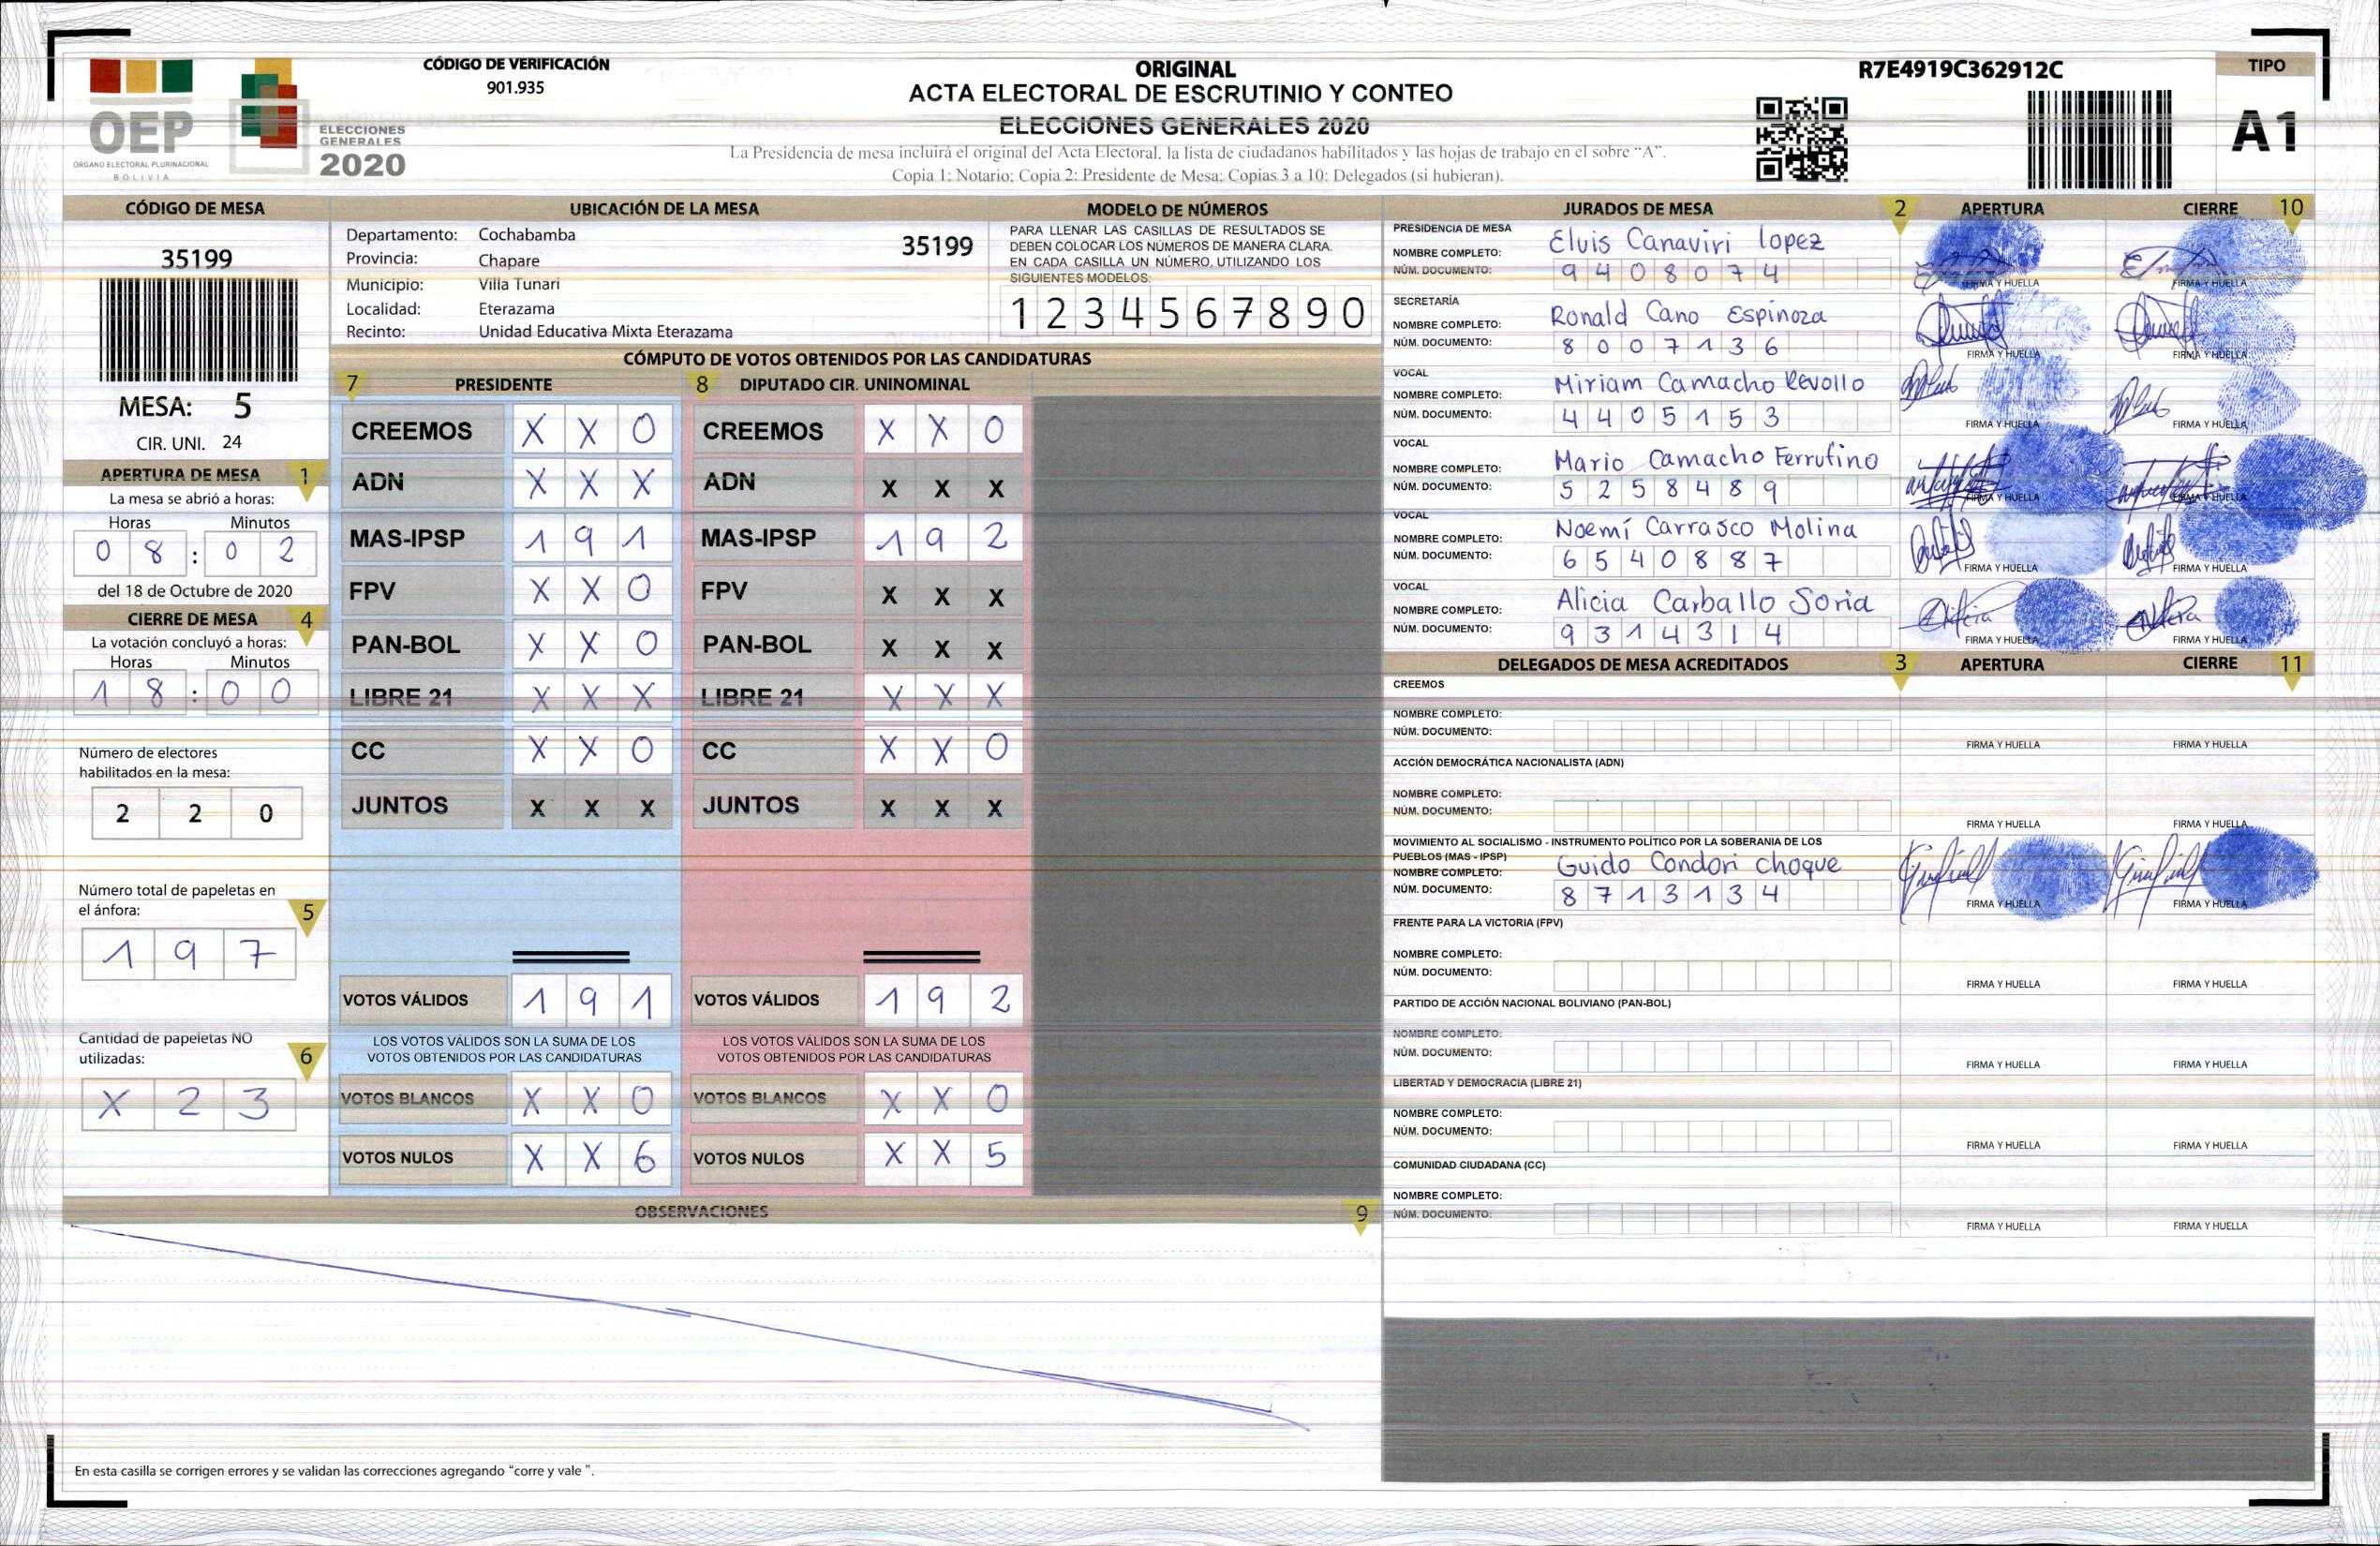 OEP
ÓRGANO ELECTORAL PLURINACIONAL
BOLIVIA
ELECCIONES
GENERALES
2020
CÓDIGO DE VERIFICACIÓN
901.935
ORIGINAL
ACTA ELECTORAL DE ESCRUTINIO Y CONTEO
ELECCIONES GENERALES 2020
La Presidencia de mesa incluirá el original del Acta Electoral, la lista de ciudadanos habilitados y las hojas de trabajo en el sobre “A”.
Copia 1: Notario; Copia 2: Presidente de Mesa; Copias 3 a 10: Delegados (si hubieran).
R7E4919C362912C
TIPO
A1
CÓDIGO DE MESA
35199
MESA: 5
CIR. UNI. 24
APERTURA DE MESA 1
La mesa se abrió a horas:
Horas Minutos
0 8 : 0 2
del 18 de Octubre de 2020
CIERRE DE MESA 4
La votación concluyó a horas:
Horas Minutos
1 8 : 0 0
Número de electores
habilitados en la mesa:
2 2 0
Número total de papeletas en
el ánfora: 5
1 9 7
Cantidad de papeletas NO
utilizadas: 6
X 2 3
UBICACIÓN DE LA MESA
Departamento: Cochabamba
35199
Provincia: Chapare
Municipio: Villa Tunari
Localidad: Eterazama
Recinto: Unidad Educativa Mixta Eterazama
MODELO DE NÚMEROS
PARA LLENAR LAS CASILLAS DE RESULTADOS SE
DEBEN COLOCAR LOS NÚMEROS DE MANERA CLARA.
EN CADA CASILLA UN NÚMERO, UTILIZANDO LOS
SIGUIENTES MODELOS:
1 2 3 4 5 6 7 8 9 0
CÓMPUTO DE VOTOS OBTENIDOS POR LAS CANDIDATURAS
7 PRESIDENTE 8 DIPUTADO CIR. UNINOMINAL
CREEMOS X X 0 CREEMOS X X 0
ADN X X X ADN X X X
MAS-IPSP 1 9 1 MAS-IPSP 1 9 2
FPV X X 0 FPV X X X
PAN-BOL X X 0 PAN-BOL X X X
LIBRE 21 X X X LIBRE 21 X X X
CC X X 0 CC X X 0
JUNTOS X X X JUNTOS X X X
VOTOS VÁLIDOS 1 9 1 VOTOS VÁLIDOS 1 9 2
LOS VOTOS VÁLIDOS SON LA SUMA DE LOS LOS VOTOS VÁLIDOS SON LA SUMA DE LOS
VOTOS OBTENIDOS POR LAS CANDIDATURAS VOTOS OBTENIDOS POR LAS CANDIDATURAS
VOTOS BLANCOS X X 0 VOTOS BLANCOS X X 0
VOTOS NULOS X X 6 VOTOS NULOS X X 5
OBSERVACIONES 9
En esta casilla se corrigen errores y se validan las correcciones agregando “corre y vale ”.
JURADOS DE MESA 2 APERTURA CIERRE 10
PRESIDENCIA DE MESA
NOMBRE COMPLETO: Eluis Canaviri lopez
NÚM. DOCUMENTO: 9 4 0 8 0 7 4
FIRMA Y HUELLA FIRMA Y HUELLA
SECRETARÍA
NOMBRE COMPLETO: Ronald Cano Espinoza
NÚM. DOCUMENTO: 8 0 0 7 1 3 6
FIRMA Y HUELLA FIRMA Y HUELLA
VOCAL
NOMBRE COMPLETO: Miriam Camacho Revollo
NÚM. DOCUMENTO: 4 4 0 5 1 5 3
FIRMA Y HUELLA FIRMA Y HUELLA
VOCAL
NOMBRE COMPLETO: Mario Camacho Ferrufino
NÚM. DOCUMENTO: 5 2 5 8 4 8 9
FIRMA Y HUELLA FIRMA Y HUELLA
VOCAL
NOMBRE COMPLETO: Noemí Carrasco Molina
NÚM. DOCUMENTO: 6 5 4 0 8 8 7
FIRMA Y HUELLA FIRMA Y HUELLA
VOCAL
NOMBRE COMPLETO: Alicia Carballo Soria
NÚM. DOCUMENTO: 9 3 1 4 3 1 4
FIRMA Y HUELLA FIRMA Y HUELLA
DELEGADOS DE MESA ACREDITADOS 3 APERTURA CIERRE 11
CREEMOS
NOMBRE COMPLETO:
NÚM. DOCUMENTO:
FIRMA Y HUELLA FIRMA Y HUELLA
ACCIÓN DEMOCRÁTICA NACIONALISTA (ADN)
NOMBRE COMPLETO:
NÚM. DOCUMENTO:
FIRMA Y HUELLA FIRMA Y HUELLA
MOVIMIENTO AL SOCIALISMO - INSTRUMENTO POLÍTICO POR LA SOBERANIA DE LOS
PUEBLOS (MAS - IPSP)
NOMBRE COMPLETO: Guido Condori choque
NÚM. DOCUMENTO: 8 7 1 3 1 3 4
FIRMA Y HUELLA FIRMA Y HUELLA
FRENTE PARA LA VICTORIA (FPV)
NOMBRE COMPLETO:
NÚM. DOCUMENTO:
FIRMA Y HUELLA FIRMA Y HUELLA
PARTIDO DE ACCIÓN NACIONAL BOLIVIANO (PAN-BOL)
NOMBRE COMPLETO:
NÚM. DOCUMENTO:
FIRMA Y HUELLA FIRMA Y HUELLA
LIBERTAD Y DEMOCRACIA (LIBRE 21)
NOMBRE COMPLETO:
NÚM. DOCUMENTO:
FIRMA Y HUELLA FIRMA Y HUELLA
COMUNIDAD CIUDADANA (CC)
NOMBRE COMPLETO:
NÚM. DOCUMENTO:
FIRMA Y HUELLA FIRMA Y HUELLA